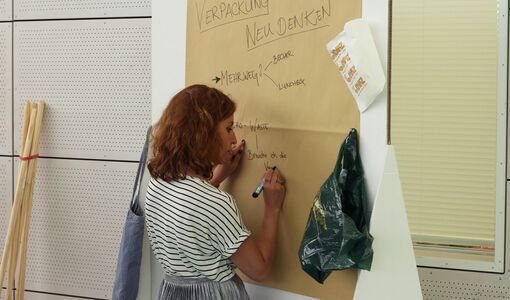 VERPACKUNG
NEU DENKEN
→ MEHRWEG?
BECHER
LUNCHBOX
- WASTE
Brauche ich die